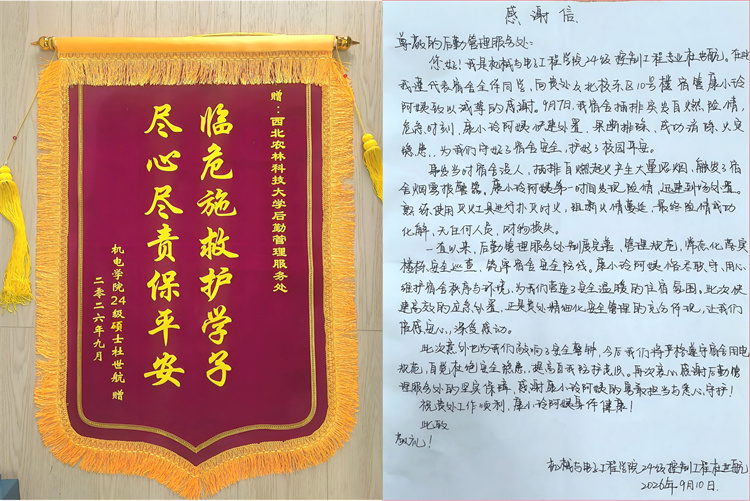 赠：西北农林科技大学后勤管理服务处
临危施救护学子
尽心尽责保平安
机电学院24级硕士杜世航 赠
二零二六年九月
感谢信
尊敬的后勤管理服务处：
您好！我是机械与电子工程学院24级控制工程专业杜世航。在此
我谨代表宿舍全体同学，向贵处及北校东区10号楼宿管康小玲
阿姨致以诚挚的感谢。9月7日，我宿舍插排突发自燃险情，
危急时刻，康小玲阿姨快速处置、果断排险，成功消除火灾
隐患，为我们守好了宿舍安全，护好了校园平安。
事发当时宿舍没人，插排自燃起火产生大量浓烟，触发了宿
舍烟雾报警器。康小玲阿姨第一时间发现险情，迅速到场处置。
熟练使用灭火工具进行扑灭明火，阻断火情蔓延，最终险情成功
化解，无任何人员、财物损失。
一直以来，后勤管理服务处制度完善，管理规范，常态化落实
楼栋安全巡查，筑牢宿舍安全防线。康小玲阿姨恪尽职守、用心
维护宿舍秩序与环境，为我们营造安全温暖的住宿氛围。此次快
速高效的应急处置，正是贵处精细化安全管理的充分体现，让我们
倍感安心，深受感动。
此次意外也为我们敲响了安全警钟，今后我们将严格遵守宿舍用电
规范，自觉杜绝安全隐患，提高自我防护意识。再次衷心感谢后勤管
理服务处的坚实保障，感谢康小玲阿姨的勇敢担当与悉心守护！
祝贵处工作顺利，康小玲阿姨身体健康！
此致
敬礼！
机械与电子工程学院24级控制工程杜世航
2026年9月10日